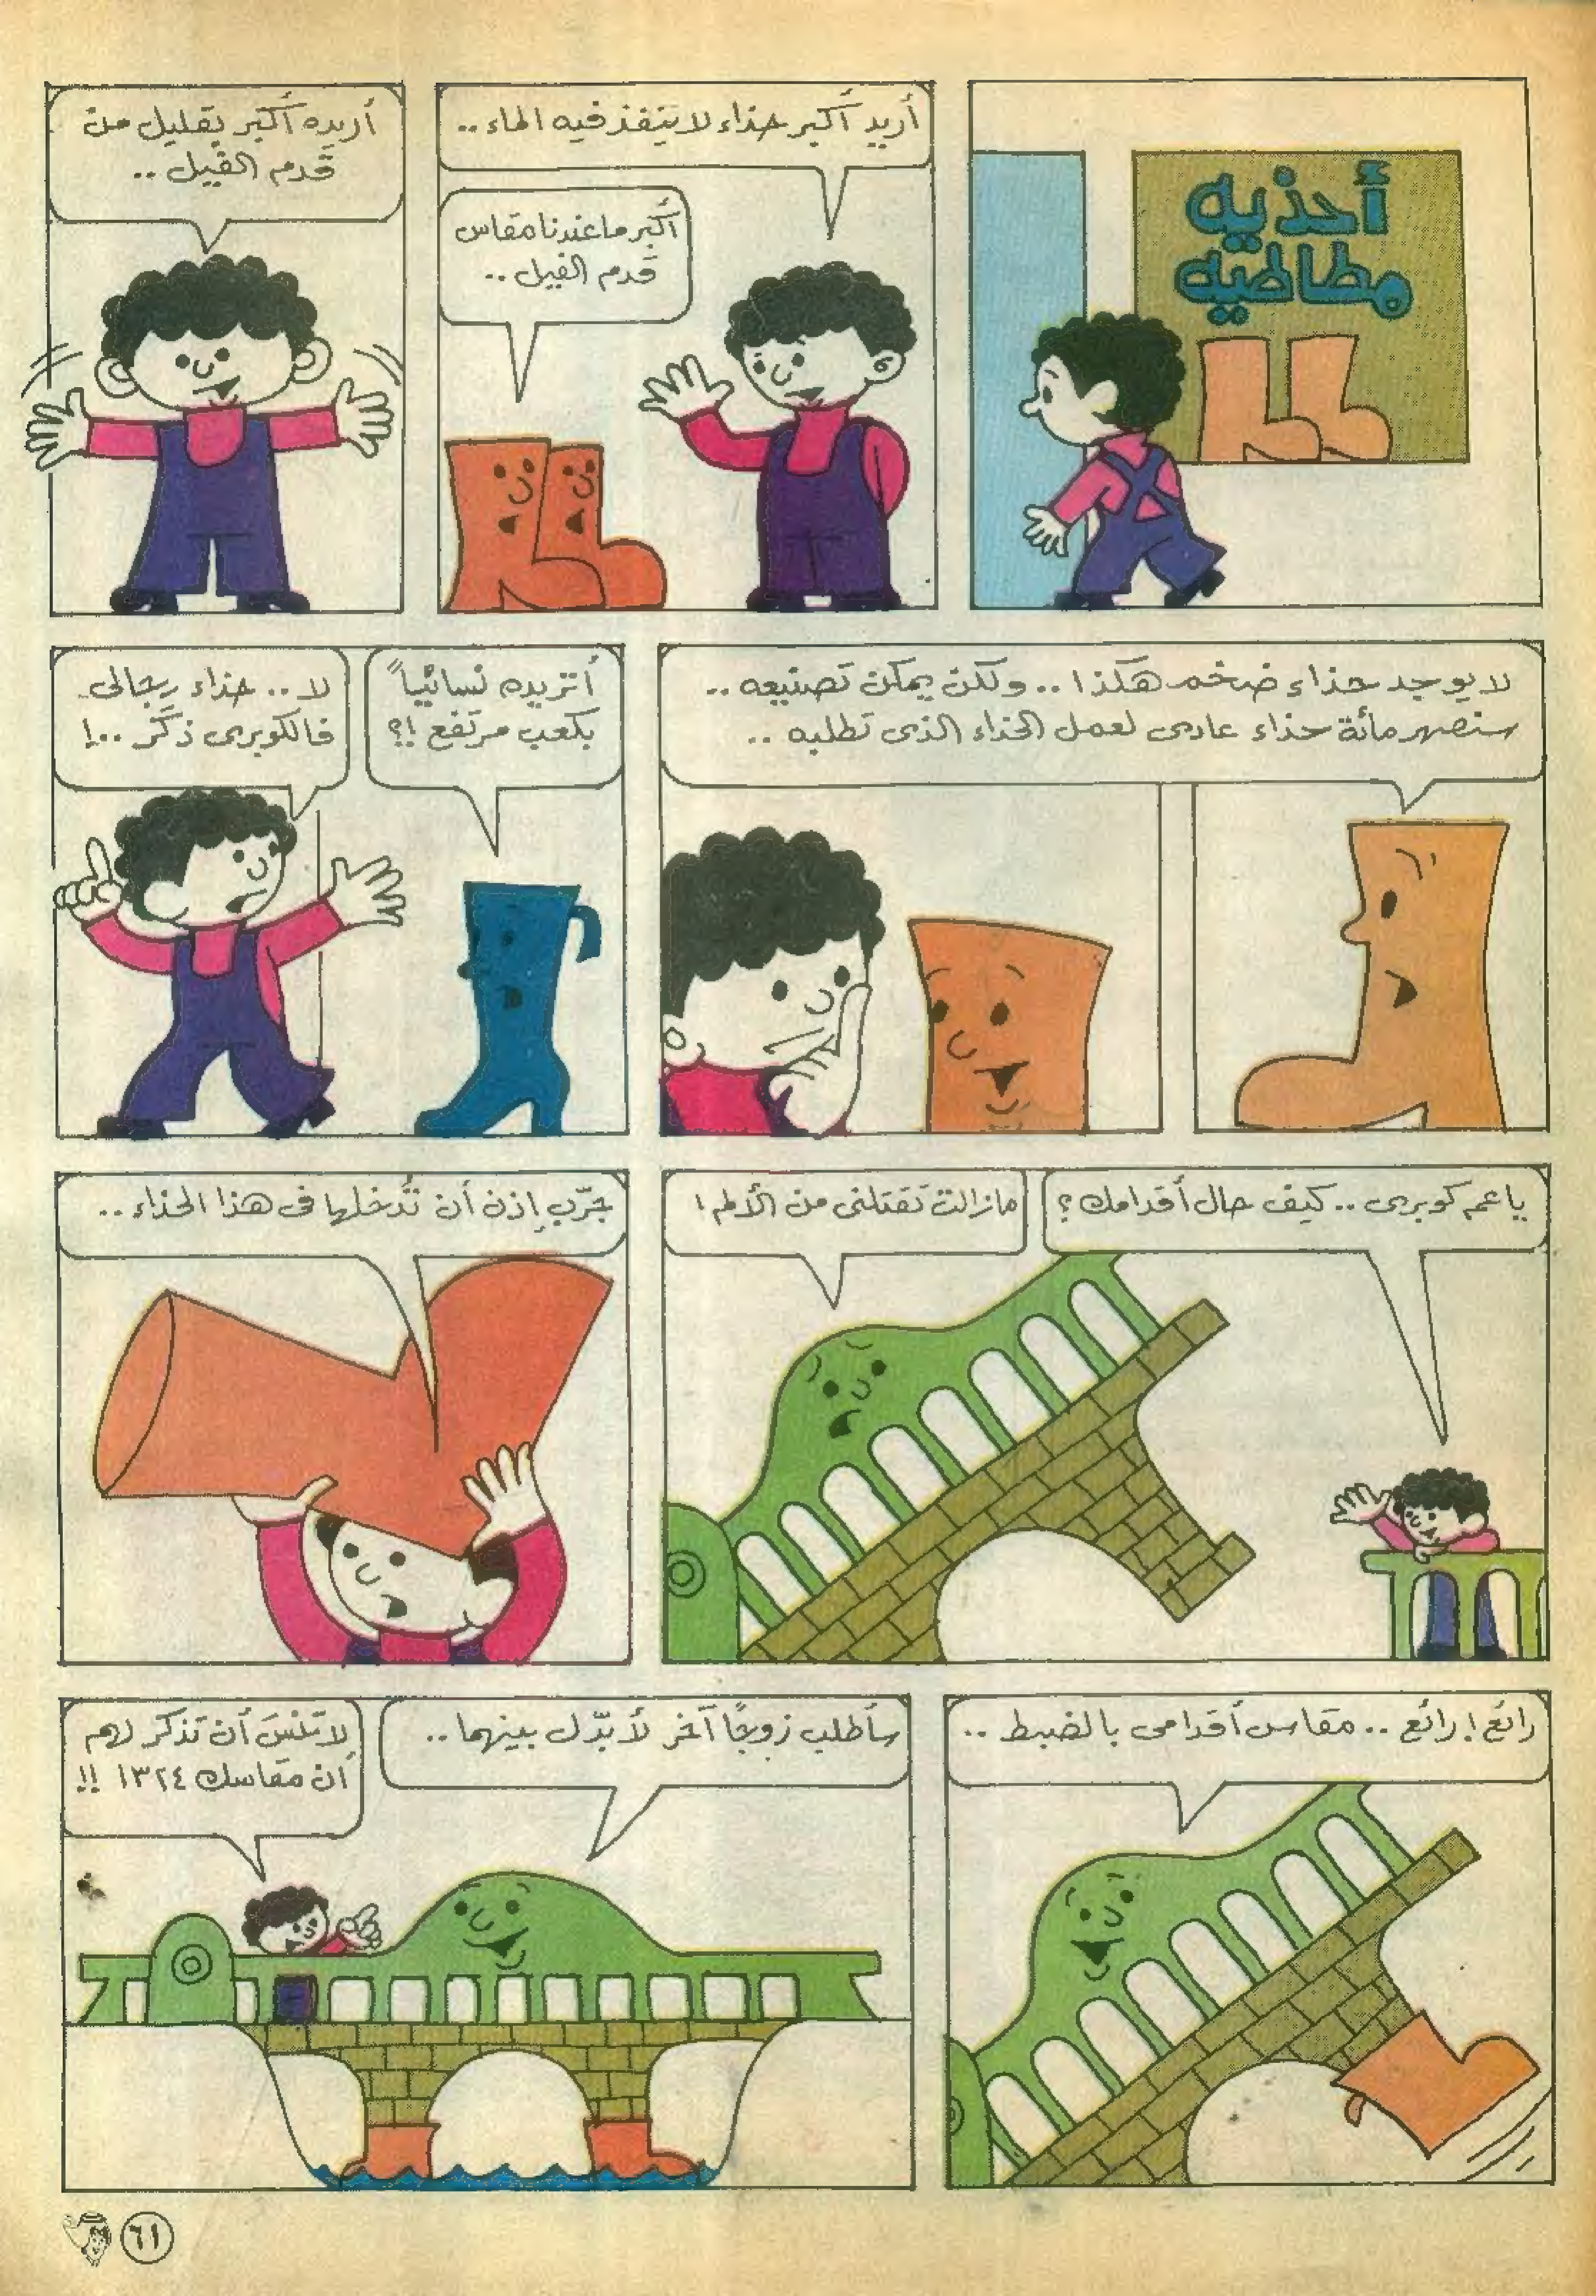 أحذيه
مطاطيه
أريد أكبر حذاء لا ينفذ فيه الماء ..
أكبر ما عندنا مقاس
قدم الفيل ..
أريده أكبر بقليل من
قدم الفيل ..
لا يوجد حذاء ضخم هكذا .. ولكن يمكن تصنيعه ..
سنصهر مائة حذاء عادى لعمل الحذاء الذى تطلبه ..
أتريده نسائياً
بكعب مرتفع !؟
لا .. حذاء رجالى
فالكوبرى ذكَر ..!
يا عم كوبرى .. كيف حال أقدامك ؟
مازالت تقتلنى من الألم !
جرّب إذن أن تُدخلها فى هذا الحذاء ..
رائع ! رائع .. مقاس أقدامى بالضبط ..
سأطلب زوجًا آخر لأبدّل بينهما ..
لا تنسَ أن تذكر لهم
أن مقاسك ١٣٢٤ !!
٦١